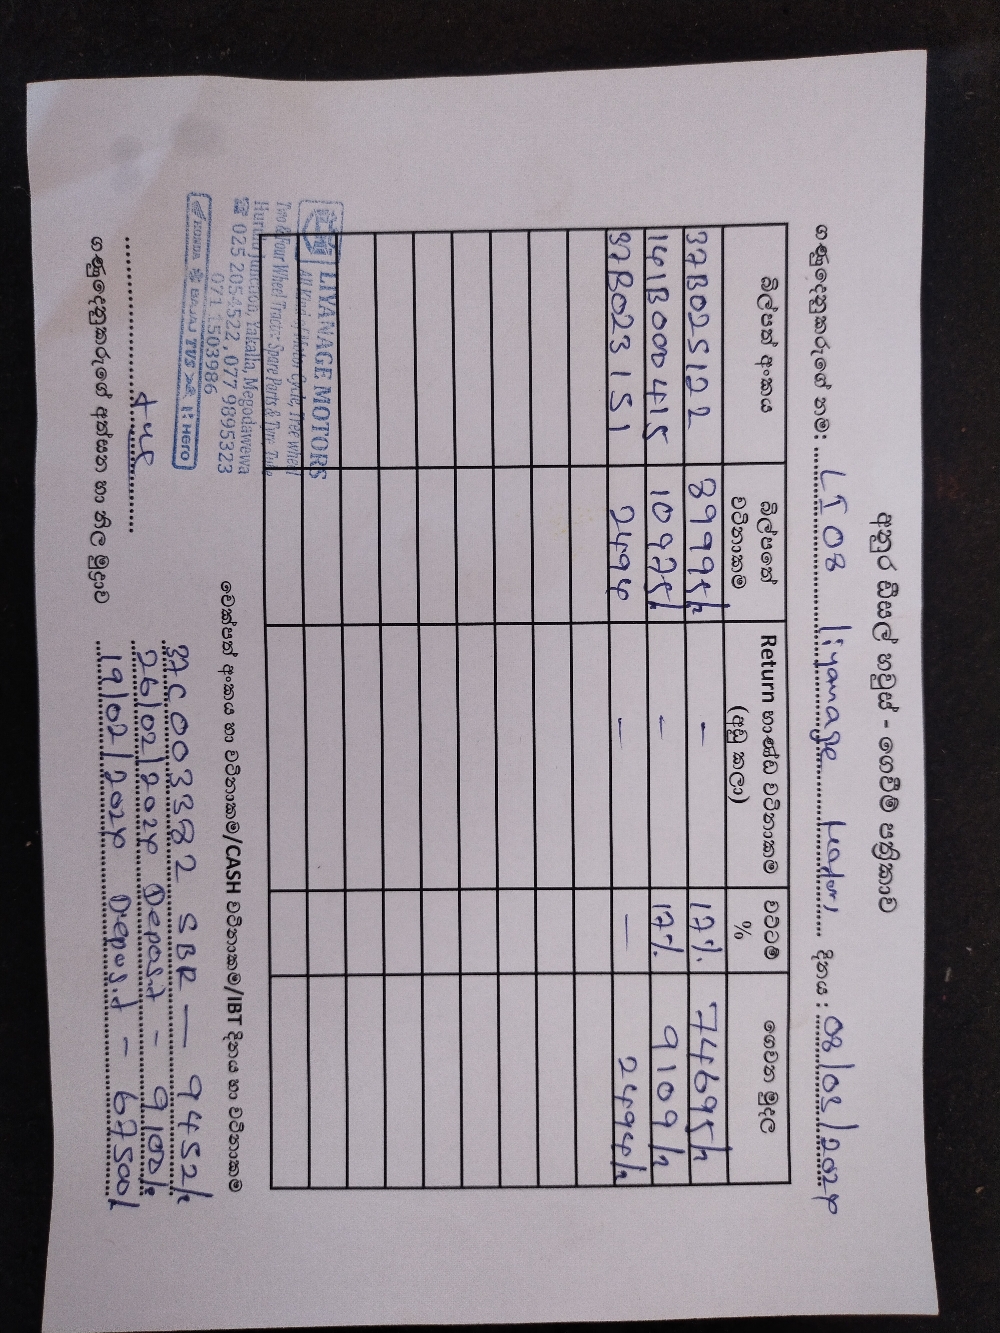 අනුර ඩීසල් හවුස් - ගෙවීම් පත්‍රිකාව
ගණුදෙනුකරුගේ නම: LI 08 liyanage Motors දිනය: 08/03/2024
බිල්පත් අංකය බිල්පතේ වටිනාකම Return භාණ්ඩ වටිනාකම (අඩු කලා) වට්ටම % ගෙවන මුදල
37B025122 89995/= - 17% 74695/=
141B000415 10975/= - 17% 9109/=
37B023151 2494 - - 2494/=
LIYANAGE MOTORS
All Kind of Motor Cycle, Tree wheel
Two & Four Wheel Tractor Spare Parts & Tyre Tube
Hurulu Junction, Yakalla, Megodawewa
☎ 025 2054522, 077 9895323
071 1503986
HONDA BAJAJ TVS Hero
චෙක්පත් අංකය හා වටිනාකම/CASH වටිනාකම/IBT දිනය හා වටිනාකම
37C003382 SBR - 9452/=
26/02/2024 Deposit - 9100/=
19/02/2024 Deposit - 67500/
ගණුදෙනුකරුගේ අත්සන හා නිල මුද්‍රාව